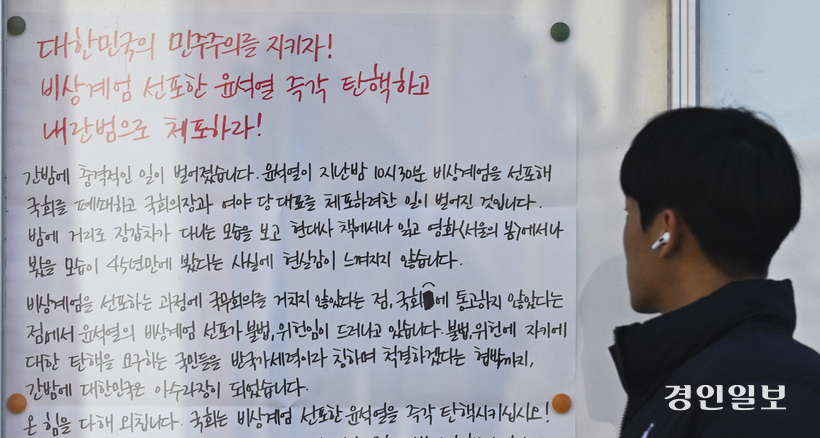 대한민국의 민주주의를 지키자!
비상계엄 선포한 윤석열 즉각 탄핵하고
내란범으로 체포하라!
간밤에 충격적인 일이 벌어졌습니다. 윤석열이 지난밤 10시 30분 비상계엄을 선포해
국회를 폐쇄하고 국회의장과 여야 당대표를 체포하려한 일이 벌어진 것입니다.
밤에 거리로 장갑차가 다니는 모습을 보고 현대사 책에서나 읽고 영화<서울의 봄>에서나
봤을 모습이 45년만에 봤다는 사실에 현실감이 느껴지지 않습니다.
비상계엄을 선포하는 과정에 국무회의를 거치지 않았다는 점, 국회에 통고하지 않았다는
점에서 윤석열의 비상계엄 선포가 불법, 위헌임이 드러나고 있습니다. 불법, 위헌에 자기에
대한 탄핵을 요구하는 국민들을 반국가세력이라 칭하며 척결하겠다는 협박까지,
간밤에 대한민국은 아수라장이 되었습니다.
온 힘을 다해 외칩니다. 국회는 비상계엄 선포한 윤석열을 즉각 탄핵시키십시오!
경인일보